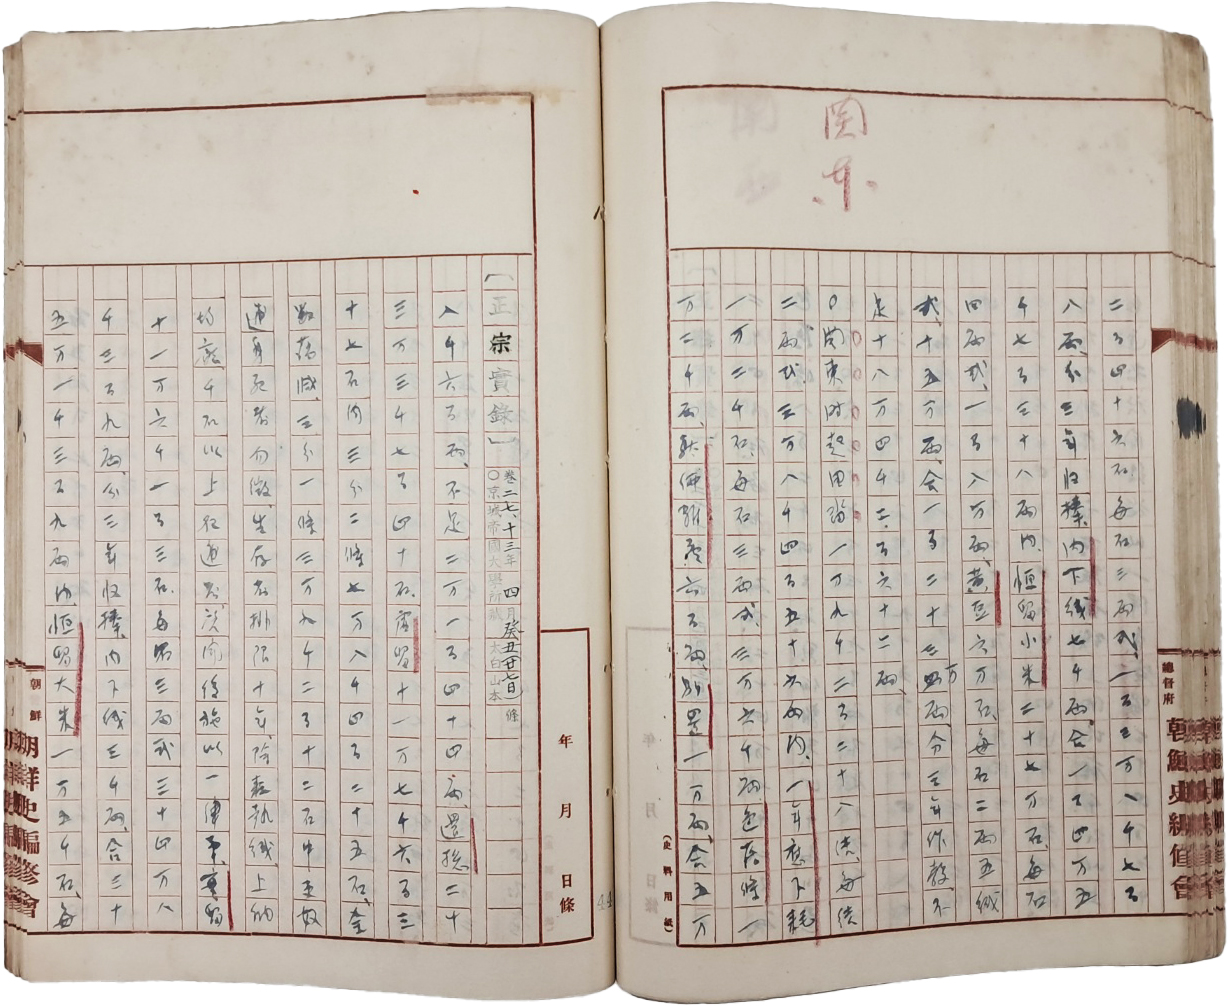 関
东
二百四十六石每石三兩式二百三万八千七百
八兩分三年收捧內下錢七千兩合一百四万五
千七百三十八兩內恒留小米二十七万石每石
四兩式一百八万兩黃豆六万石每石二兩五錢
式十五万兩合一百二十三万兩分三年作数不
足十八万四千二百六十二兩
〇関東时起田畓一万九千二百二十八結每結
二兩式三万八千四百五十六兩內一年應下耗
一万二千石每石三兩式三万六千兩包蔘條一
万二千兩駄価雑費六百兩別置一万兩合五万
總督府 朝鮮史編修會
(史料用紙)
年 月 日條
[正宗實錄] 卷二七、十三年 四月癸丑廿七日條
〇京城帝國大學所藏 太白山本
八千六百兩、不足二万一百四十四兩、還摠二十
三万三千七百四十石留十一万七千六百三
十七石內三分二條七万八千四百二十五石全
數蕩減三分一條三万九千二百十二石中至奴
逋身死者勿徵生存者排限十年除耗執錢上納
均廳千石以上犯逋施以一律事實留
十一万六千一百三石每石三兩式三十四万八
千三百九兩分三年收捧內下錢三千兩合三十
五万一千三百九兩內恒留大米一万五千石每
朝鮮 朝鮮史編修會